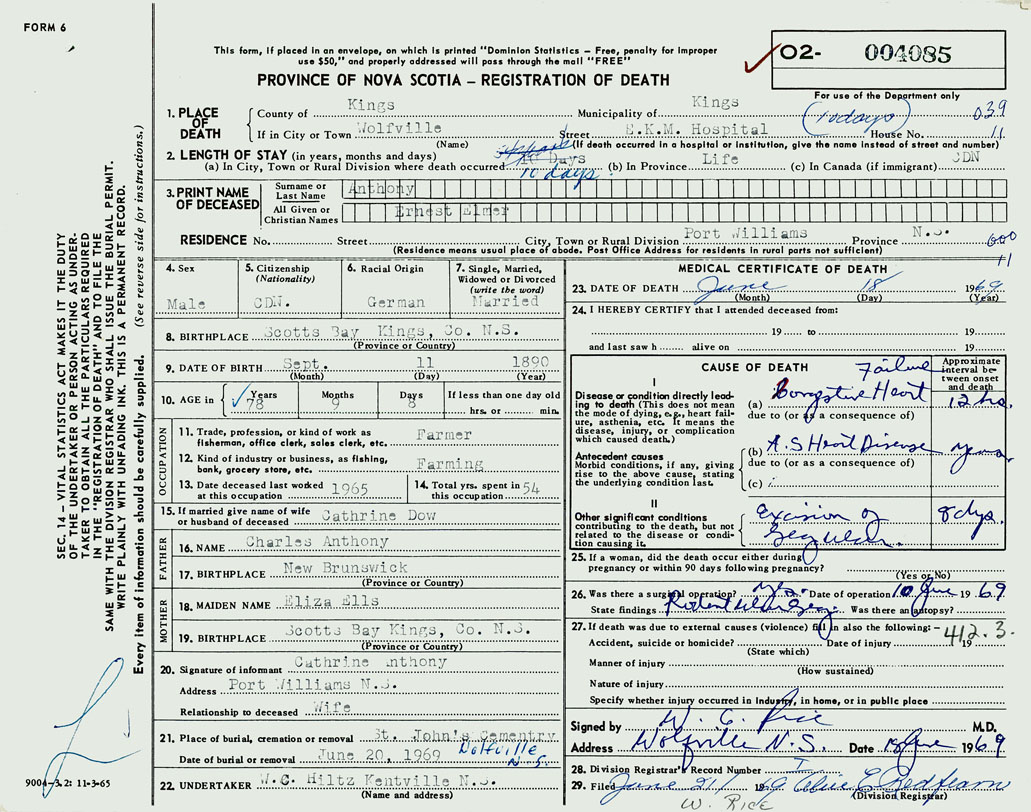 FORM 6
This form, if placed in an envelope, on which is printed "Dominion Statistics – Free, penalty for improper
use $50," and properly addressed will pass through the mail "FREE"
PROVINCE OF NOVA SCOTIA – REGISTRATION OF DEATH
O2- 004085
For use of the Department only
1. PLACE OF DEATH
County of Kings Municipality of Kings 039
If in City or Town Wolfville Street E.K.M. Hospital House No. 11
(10 days)
(Name) (If death occurred in a hospital or institution, give the name instead of street and number)
2. LENGTH OF STAY (in years, months and days)
(a) In City, Town or Rural Division where death occurred 10 Days (b) In Province Life (c) In Canada (if immigrant) CDN
10 days
3. PRINT NAME OF DECEASED
Surname or Last Name Anthony
All Given or Christian Names Ernest Elmer
RESIDENCE No. Street City, Town or Rural Division Port Williams Province N.S.
600
11
(Residence means usual place of abode. Post Office Address for residents in rural parts not sufficient)
4. Sex
Male
5. Citizenship (Nationality)
CDN.
6. Racial Origin
German
7. Single, Married, Widowed or Divorced (write the word)
Married
8. BIRTHPLACE Scotts Bay Kings, Co. N.S.
(Province or Country)
9. DATE OF BIRTH Sept. 11 1890
(Month) (Day) (Year)
10. AGE in Years Months Days If less than one day old
78 9 8 hrs. or min.
OCCUPATION
11. Trade, profession, or kind of work as
fisherman, office clerk, sales clerk, etc. Farmer
12. Kind of industry or business, as fishing,
bank, grocery store, etc. Farming
13. Date deceased last worked
at this occupation 1965
14. Total yrs. spent in
this occupation 54
15. If married give name of wife
or husband of deceased Cathrine Dow
FATHER
16. NAME Charles Anthony
17. BIRTHPLACE New Brunswick
(Province or Country)
MOTHER
18. MAIDEN NAME Eliza Ells
19. BIRTHPLACE Scotts Bay Kings, Co. N.S.
(Province or Country)
20. Signature of informant Cathrine Anthony
Address Port Williams N.S.
Relationship to deceased Wife
21. Place of burial, cremation or removal St. John's Cementry
Wolfville N.S.
Date of burial or removal June 20, 1969
22. UNDERTAKER W.C. Hiltz Kentville N.S.
(Name and address)
MEDICAL CERTIFICATE OF DEATH
23. DATE OF DEATH June 18 1969
(Month) (Day) (Year)
24. I HEREBY CERTIFY that I attended deceased from:
19 to 19
and last saw h alive on 19
CAUSE OF DEATH
Approximate interval between onset and death
I
Disease or condition directly leading
to death (This does not mean
the mode of dying, e.g., heart failure,
asthenia, etc. It means the
disease, injury, or complication
which caused death.)
Failure
(a) Congestive Heart 12 hrs.
due to (or as a consequence of)
Antecedent causes
Morbid conditions, if any, giving
rise to the above cause, stating
the underlying condition last.
(b) A.S Heart Disease years
due to (or as a consequence of)
(c)
II
Other significant conditions
contributing to the death, but not
related to the disease or condition
causing it.
Excision of 8 dys.
25. If a woman, did the death occur either during
pregnancy or within 90 days following pregnancy?
(Yes or No)
26. Was there a surgical operation? yes. Date of operation 10 June 1969
State findings Rodent Ulcer Was there an autopsy?
27. If death was due to external causes (violence) fill in also the following: –
412.3.
Accident, suicide or homicide? Date of injury 19
(State which)
Manner of injury
(How sustained)
Nature of injury
Specify whether injury occurred in Industry, in home, or in public place
Signed by W. C. Rice M.D.
Address Wolfville N.S. Date 18 June 1969
28. Division Registrar's Record Number
29. Filed June 21/ 1969
(Division Registrar)
W. RICE
SEC. 14 – VITAL STATISTICS ACT MAKES IT THE DUTY
OF THE UNDERTAKER OR PERSON ACTING AS UNDERTAKER
TO OBTAIN ALL THE PARTICULARS REQUIRED
IN THE "REGISTRATION OF DEATH" AND TO FILE THE
SAME WITH THE DIVISION REGISTRAR WHO SHALL ISSUE THE BURIAL PERMIT.
WRITE PLAINLY WITH UNFADING INK. THIS IS A PERMANENT RECORD.
Every item of information should be carefully supplied. (See reverse side for instructions.)
9004-3.2: 11-3-65